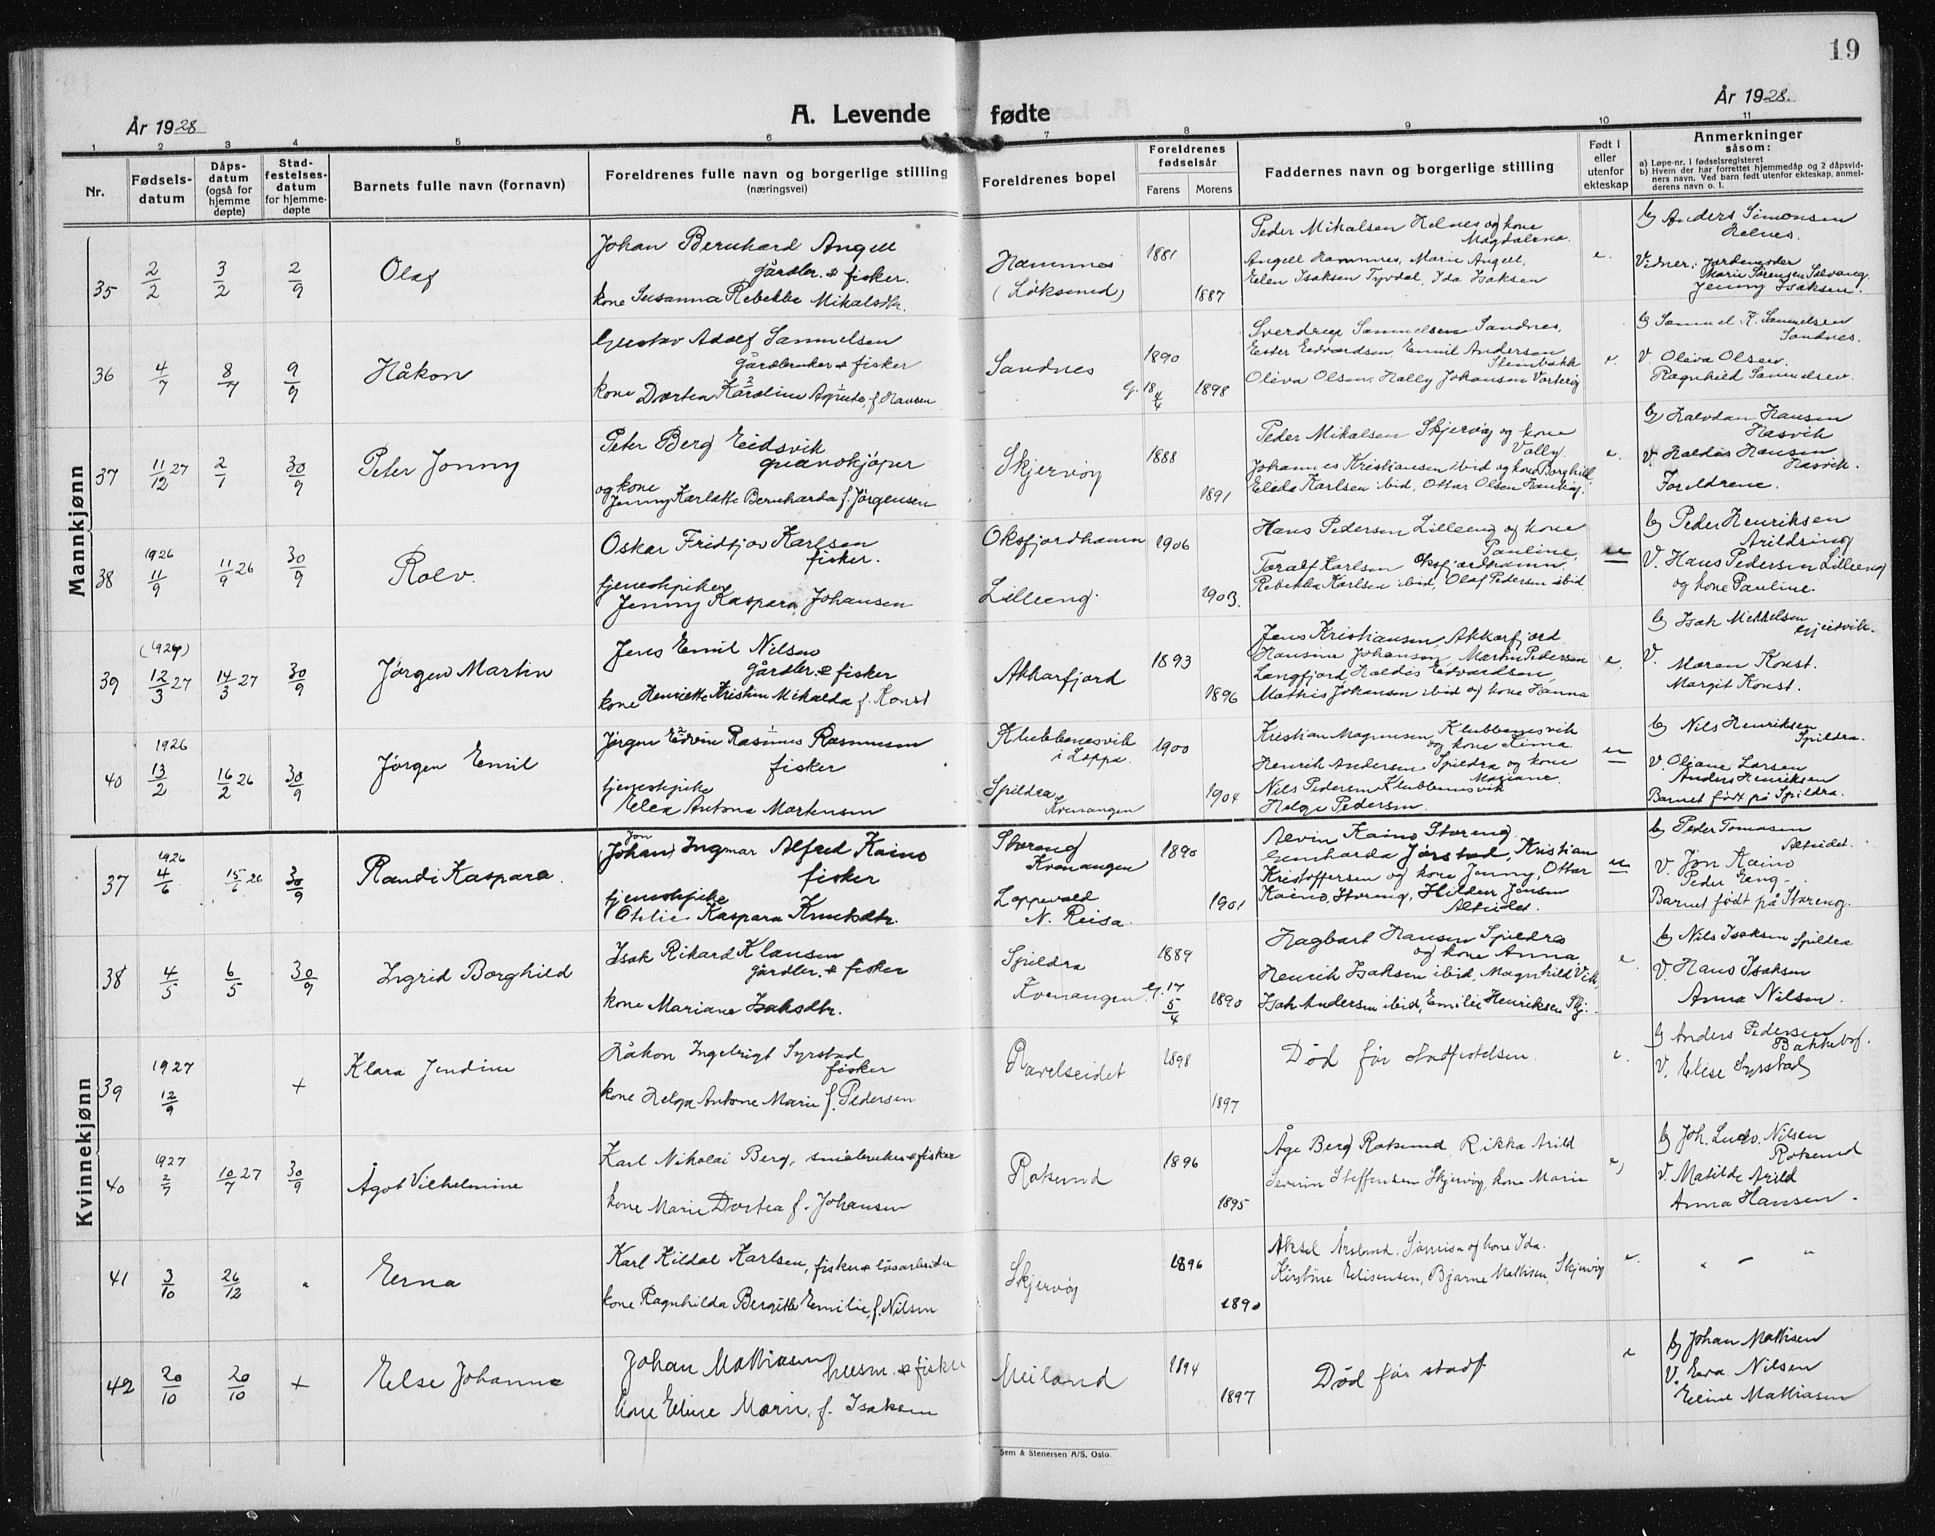 19
År 1928
A. Levende fødte
År 1928.
1 2 3 4 5 6 7 8 9 10 11
Nr.
Fødsels-datum
Dåps-datum (også for hjemme døpte)
Stad-festelses-datum for hjemme-døpte
Barnets fulle navn (fornavn)
Foreldrenes fulle navn og borgerlige stilling
(næringsvei)
Foreldrenes bopel
Foreldrenes fødselsår
Farens Morens
Faddernes navn og borgerlige stilling
Født i eller utenfor ekteskap
Anmerkninger
såsom:
a) Løpe-nr. i fødselsregisteret
b) Hvem der har forrettet hjemmedåp og 2 dåpsvid-
ners navn. Ved barn født utenfor ekteskap, anmel-
derens navn o. l.
Mannkjønn
35 2/2 3/2 2/9 Olaf
Johan Bernhard Angell
gårdbr. & fisker.
kone Susanna Rebekka Mikalsdtr.
Hamnes
(Løksund)
1881
1887
Peder Mikalsen Helnes og kone
Magdalena.
Angell Hamnes, Marie Angell,
Elen Isaksen Tyvdal, Ida Isaksen
e.
b) Anders Simonsen
Helnes.
Vidner: Jordemoder
Marie Sørensen Sølvang
Jenny Isaksen.
36 4/7 8/7 9/9 Håkon
Gustav Adolf Samuelsen
gårdbruker & fisker
kone Dorten Karoline Agnete, f. Hansen
Sandnes
1890
g. 18 4/4
1898
Sverdrup Samuelsen Sandnes,
Ester Edvardsen, Emil Andersen
Steinbakk
Oliva Olsen, Hally Johansen Vorterøy
e.
b) Samuel K. Samuelsen
Sandnes.
V. Oliva Olsen.
Ragnhild Samuelsen.
37 11/12 27 2/1 30/9 Peter Jonny
Peter Berg Eidsvik
guanokjøper
og kone
Jenny Karlotte Bernharda f. Jörgensen
Skjervöy
1888
1891
Peder Mikalsen Skjervöy og kone
Vally.
Johannes Kristiansen ibid og kone Borghill
Elida Karlsen ibid, Ottar Olsen Haukøy.
e.
b) Halvdan Hansen
Hasvik
V. Haldis Hansen
Hasvik.
Foreldrene.
38 1926 11/9 11/9 26 30/9 Rolv
Oskar Fridtjov Karlsen
fisker.
tjenestpike
Jenny Kaspara Johansen
Oksfjordhamn
Lilleeng.
1906
1903.
Hans Pedersen Lilleeng og kone
Pauline,
Toralf Karlsen Oksfjordhamn,
Rebekka Karlsen ibid, Olaf Pedersen ibid
ue
b) Peder Henriksen
Arildsing
V. Hans Pedersen Lilleeng
og kone Pauline.
39 (1927) 12/3 27 14/3 27 30/9 Jørgen Martin
Jens Emil Nilsen
gårdbr. & fisker
kone Henriette Kristine Mikalda f. Konst
Akkarfjord
1893
1896
Jens Kristiansen Akkarfjord,
Hansine Johansen, Martin Pedersen
Langfjord, Haldis Edvardsen,
Mathis Johansen ibid og kone Hanna
e.
b) Isak Mikkelsen
Geitvik.
V.
Maren Konst.
Margit Konst.
40 1926 13/2 16/2 26 30/9 Jørgen Emil
Jörgen Edvin Rasmus Rasmussen
fisker
tjenestpike
Elea Antona Mortensen
Klubbenesvik
i Loppa.
Spildra
Kvenangen
1900
1904
Kristian Magnussen Klubbenesvik
og kone Lina.
Henrik Andersen Spildra og kone
Mariane.
Nils Pedersen Klubbenesvik
Helge Pedersen.
ue
b) Nils Henriksen
Spildra.
V. Oliane Larsen
Anders Henriksen
Barnet født på Spildra.
Kvinnekjønn
37 1926 4/6 15/6 26 30/9 Randi Kaspara.
Jon
(Johan) Ingmar Alfred Kaino
fisker
tjenestpike
Otelie Kaspara Knutsdtr.
Storeng
Kvenangen
Loppevald
N. Reisa.
1890
1901
Alvin Kaino Storeng,
Gunharda Jørstad, Kristian
Kristoffersen og kone Jenny, Ottar
Kaino, Storeng, Hildur Jensen
Alteidet.
ue
b) Peder Tomasen
Alteidet.
V. Jon Kaino
Peder Gang.
Barnet født på Storeng.
38 4/5 6/5 30/9 Ingrid Borghild
Isak Rikard Klausen
gårdbr. & fisker
kone Mariane Isaksdtr.
Spildra
Kvenangen.
1889
g. 17 5/4
1890
Hagbart Hansen Spildra
og kone Anna,
Henrik Isaksen ibid, Magnhild Vik,
Isak Andersen ibid, Emilie Henriksen Skj.
e
b) Nils Isaksen Spildra
V. Hans Isaksen
Anna Nilsen.
39 1927 12/9 + Klara Jendine
Håkon Ingebrigt Syrstad
fisker
kone Helga Antone Marie f. Pedersen
Ravelseidet
1898
1897
Död før stadfestelsen.
e.
b) Anders Pedersen
Bakkeby.
V. Elise Syrstad
40 1927 2/7 10/7 27 30/9 Ågot Vilhelmine
Karl Nikolai Berg, småbruker & fisker
kone Marie Dortea f. Johansen
Rotsund
1896
1895
Åge Berg Rotsund, Rikka Arild
Severin Steffensen Skjervøy, kone Marie
e)
b) Joh. Ludv. Nilsen
Rotsund
V. Matilde Arild
Anna Hansen.
41 3/10 26/12 " Erna
Karl Kildal Karlsen, fisker & løsarbeider
kone Ragnhilda Bergitte Emilie, f. Nilsen
Skjervøy
1896
1890
Aksel Årslund, og kone Ida.
Kirstine Elisensen, Bjarne Mathisen, Skjervøy
e.
" — "
42 20/10 20/10 + Else Johanne
Johan Mathiasen husm. & fisker
kone Eline Marie, f. Isaksen
Meiland
1894
1897
Död før stadf.
e
b) Johan Mathisen
V. Eva Nilsen
Eline Mathiasen
Sem & Stenersen A/S, Oslo.